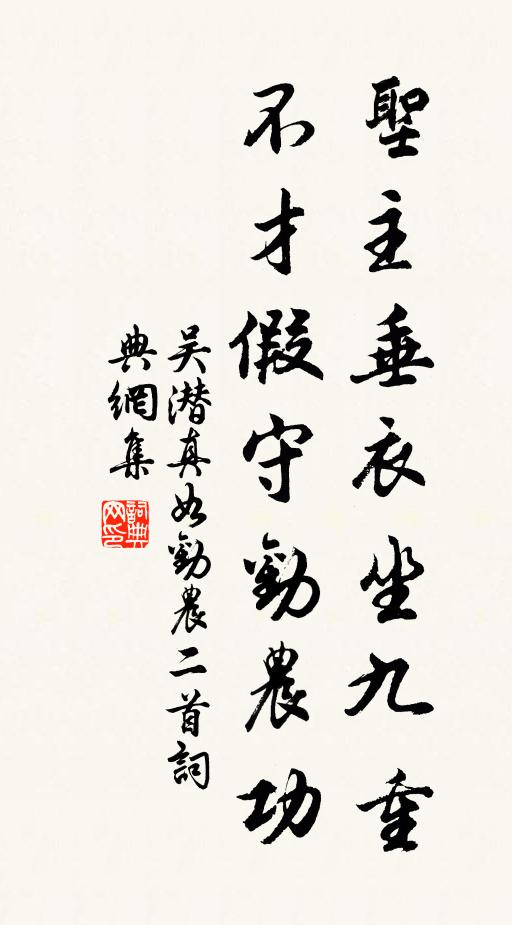 聖主垂衣坐九重
不才假守勸農功
吴潜真如勸農二首詞
典網集
詞典網印